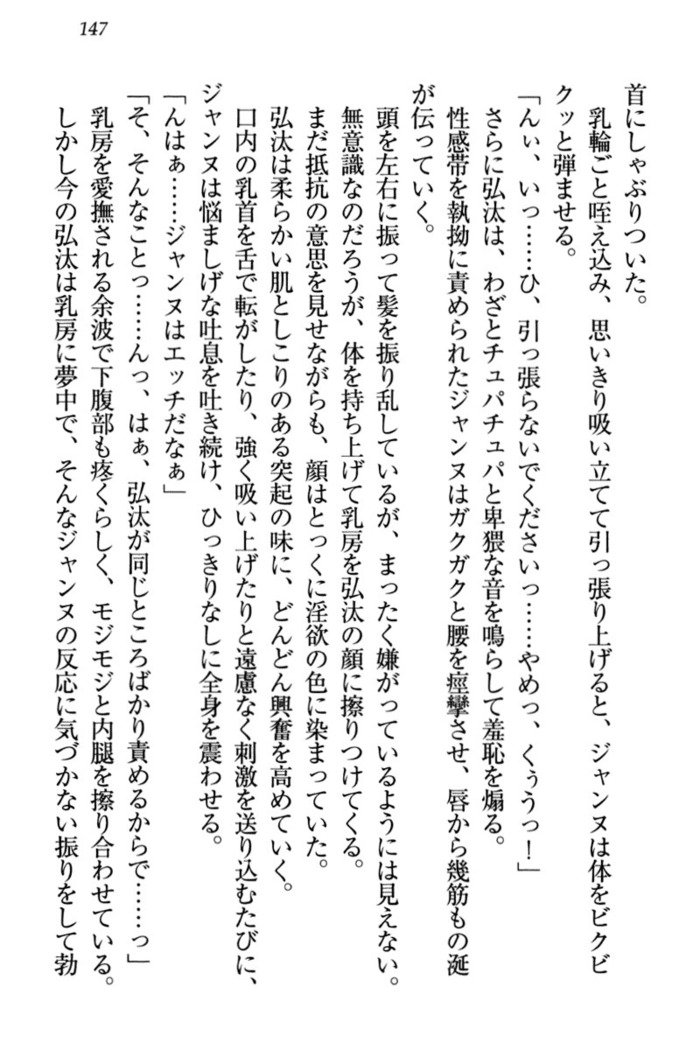 147
首にしゃぶりついた。
乳輪ごと咥え込み、思いきり吸い立てて引っ張り上げると、ジャンヌは体をビクビ
クッと弾ませる。
「んぃ、いっ……ひ、引っ張らないでくださいっ……やめっ、くぅうっ！」
さらに弘汰は、わざとチュパチュパと卑猥な音を鳴らして羞恥を煽る。
性感帯を執拗に責められたジャンヌはガクガクと腰を痙攣させ、唇から幾筋もの涎
が伝っていく。
頭を左右に振って髪を振り乱しているが、まったく嫌がっているようには見えない。
無意識なのだろうが、体を持ち上げて乳房を弘汰の顔に擦りつけてくる。
まだ抵抗の意思を見せながらも、顔はとっくに淫欲の色に染まっていた。
弘汰は柔らかい肌としこりのある突起の味に、どんどん興奮を高めていく。
口内の乳首を舌で転がしたり、強く吸い上げたりと遠慮なく刺激を送り込むたびに、
ジャンヌは悩ましげな吐息を吐き続け、ひっきりなしに全身を震わせる。
「んはぁ……ジャンヌはエッチだなぁ」
「そ、そんなことっ……んっ、はぁ、弘汰が同じところばかり責めるからで……っ」
乳房を愛撫される余波で下腹部も疼くらしく、モジモジと内腿を擦り合わせている。
しかし今の弘汰は乳房に夢中で、そんなジャンヌの反応に気づかない振りをして勃